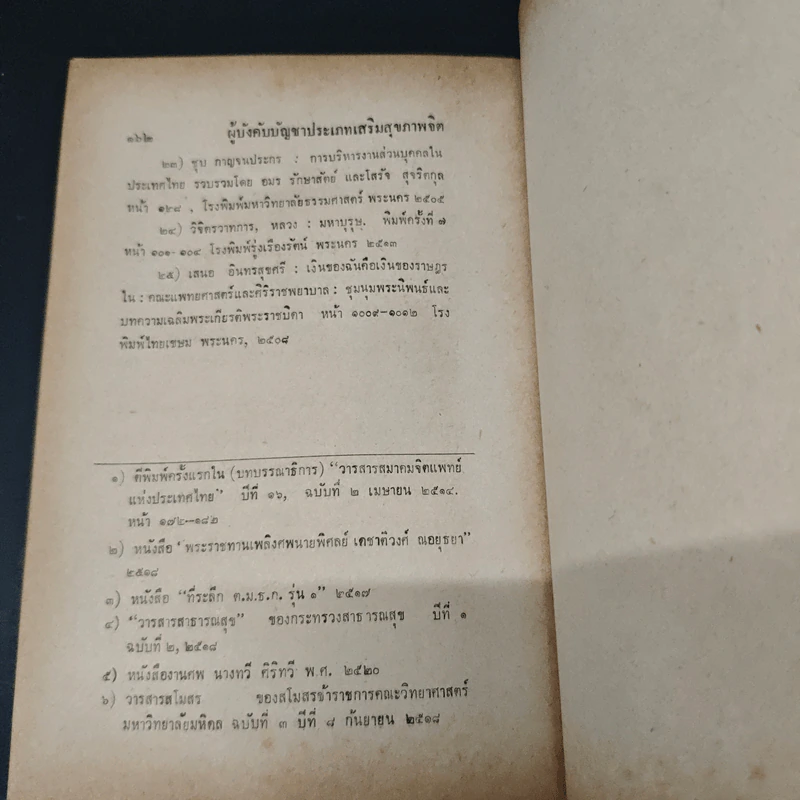 ๑๖๒ ผู้บังคับบัญชาประเภทเสริมสุขภาพจิต
๒๓) ชุบ กาญจนประกร : การบริหารงานส่วนบุคคลใน
ประเทศไทย รวบรวมโดย อมร รักษาสัตย์ และโสรัจ สุจริตกุล
หน้า ๑๒๘ , โรงพิมพ์มหาวิทยาลัยธรรมศาสตร์ พระนคร ๒๕๐๕
๒๔) วิจิตรวาทการ, หลวง : มหาบุรุษ. พิมพ์ครั้งที่ ๗
หน้า ๑๐๑-๑๐๔ โรงพิมพ์รุ่งเรืองรัตน์ พระนคร ๒๕๑๓
๒๕) เสนอ อินทรสุขศรี : เงินของฉันคือเงินของราษฎร
ใน : คณะแพทยศาสตร์และศิริราชพยาบาล : ชุมนุมพระนิพนธ์และ
บทความเฉลิมพระเกียรติพระราชบิดา หน้า ๑๐๐๙-๑๐๑๒ โรง
พิมพ์ไทยเขษม พระนคร, ๒๕๐๘
๑) ตีพิมพ์ครั้งแรกใน (บทบรรณาธิการ) "วารสารสมาคมจิตแพทย์
แห่งประเทศไทย" ปีที่ ๑๖, ฉบับที่ ๒ เมษายน ๒๕๑๔.
หน้า ๑๗๒-๑๘๒
๒) หนังสือ "พระราชทานเพลิงศพนายพิศลย์ เดชาติวงศ์ ณอยุธยา"
๒๕๑๘
๓) หนังสือ "ที่ระลึก ต.ม.ธ.ก. รุ่น ๑" ๒๕๑๗
๔) "วารสารสาธารณสุข" ของกระทรวงสาธารณสุข ปีที่ ๑
ฉบับที่ ๒, ๒๕๑๘
๕) หนังสืองานศพ นางทวี ศิริทวี พ.ศ. ๒๕๒๐
๖) วารสารสโมสร ของสโมสรข้าราชการคณะวิทยาศาสตร์
มหาวิทยาลัยมหิดล ฉบับที่ ๓ ปีที่ ๘ กันยายน ๒๕๑๘